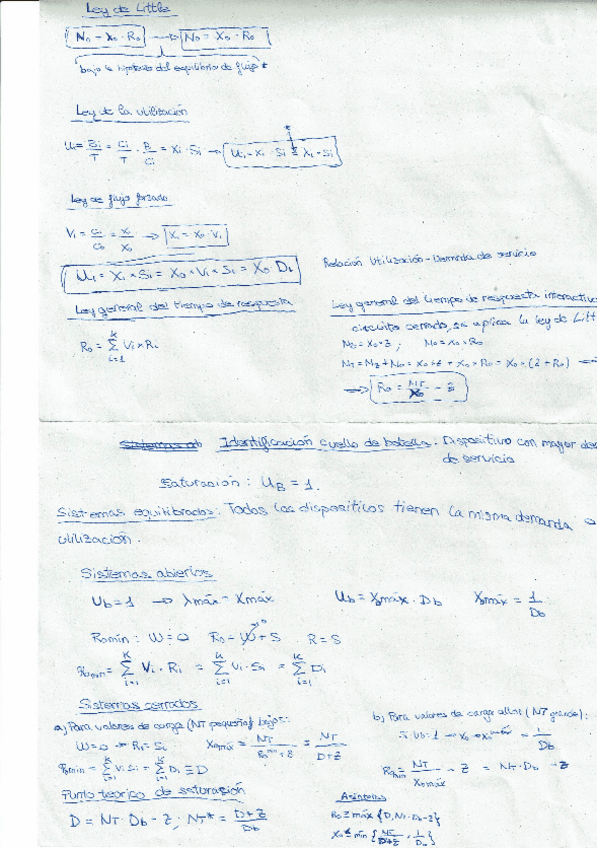 Ley de Little
N₀ = X₀ · R₀ → N₀ = X₀ · R₀
bajo la hipótesis del equilibrio de flujo *
Ley de la utilización
Ui = Bi/T = Ci/T · B/Ci = Xi · Si → Ui = Xi · Si = λi · Si
Ley de flujo forzado
Vi = Ci/C₀ = Xi/X₀ → Xi = X₀ · Vi
Ui = Xi × Si = X₀ × Vi × Si = X₀ Di
Relación Utilización - Demanda de servicio
Ley general del tiempo de respuesta
R₀ = Σ Vi × Ri
K
i=1
Ley general del tiempo de respuesta interactivo
circuitos cerrado, se aplica la ley de Litt
Nz = X₀ × Z ; N₀ = X₀ × R₀
NT = Nz + N₀ = X₀ × Z + X₀ × R₀ = X₀ × (Z + R₀) →
→ R₀ = NT/X₀ - Z
Identificación cuello de botella: Dispositivo con mayor de
de servicio
Saturación: UB = 1.
Sistemas equilibrados: Todos los dispositivos tienen la misma demanda o
utilización.
Sistemas abiertos
Ub = 1 → λmáx = Xmáx Ub = Xmáx · Db Xmáx = 1/Db
R₀min: W = 0 R₀ = W + S R = S
R₀min = Σ Vi · Ri = Σ Vi · Si = Σ Di
Sistemas cerrados
a) Para valores de carga (NT pequeño) bajos:
W = 0 → Ri = Si X₀máx = NT/R₀min + Z = NT/D+Z
R₀min = Σ Vi Si = Σ Di ≡ D
b) Para valores de carga altos (NT grande):
Ub = 1 → X₀ → X₀máx = 1/Db
R₀min = NT/X₀máx - Z = NT · Db - Z
Punto teorico de saturación
D = NT · Db - Z ; NT* = D+Z/Db
Asíntotas
R₀ ≥ máx {D, NT · Db - Z}
X₀ ≤ mín {NT/D+Z, 1/Db}